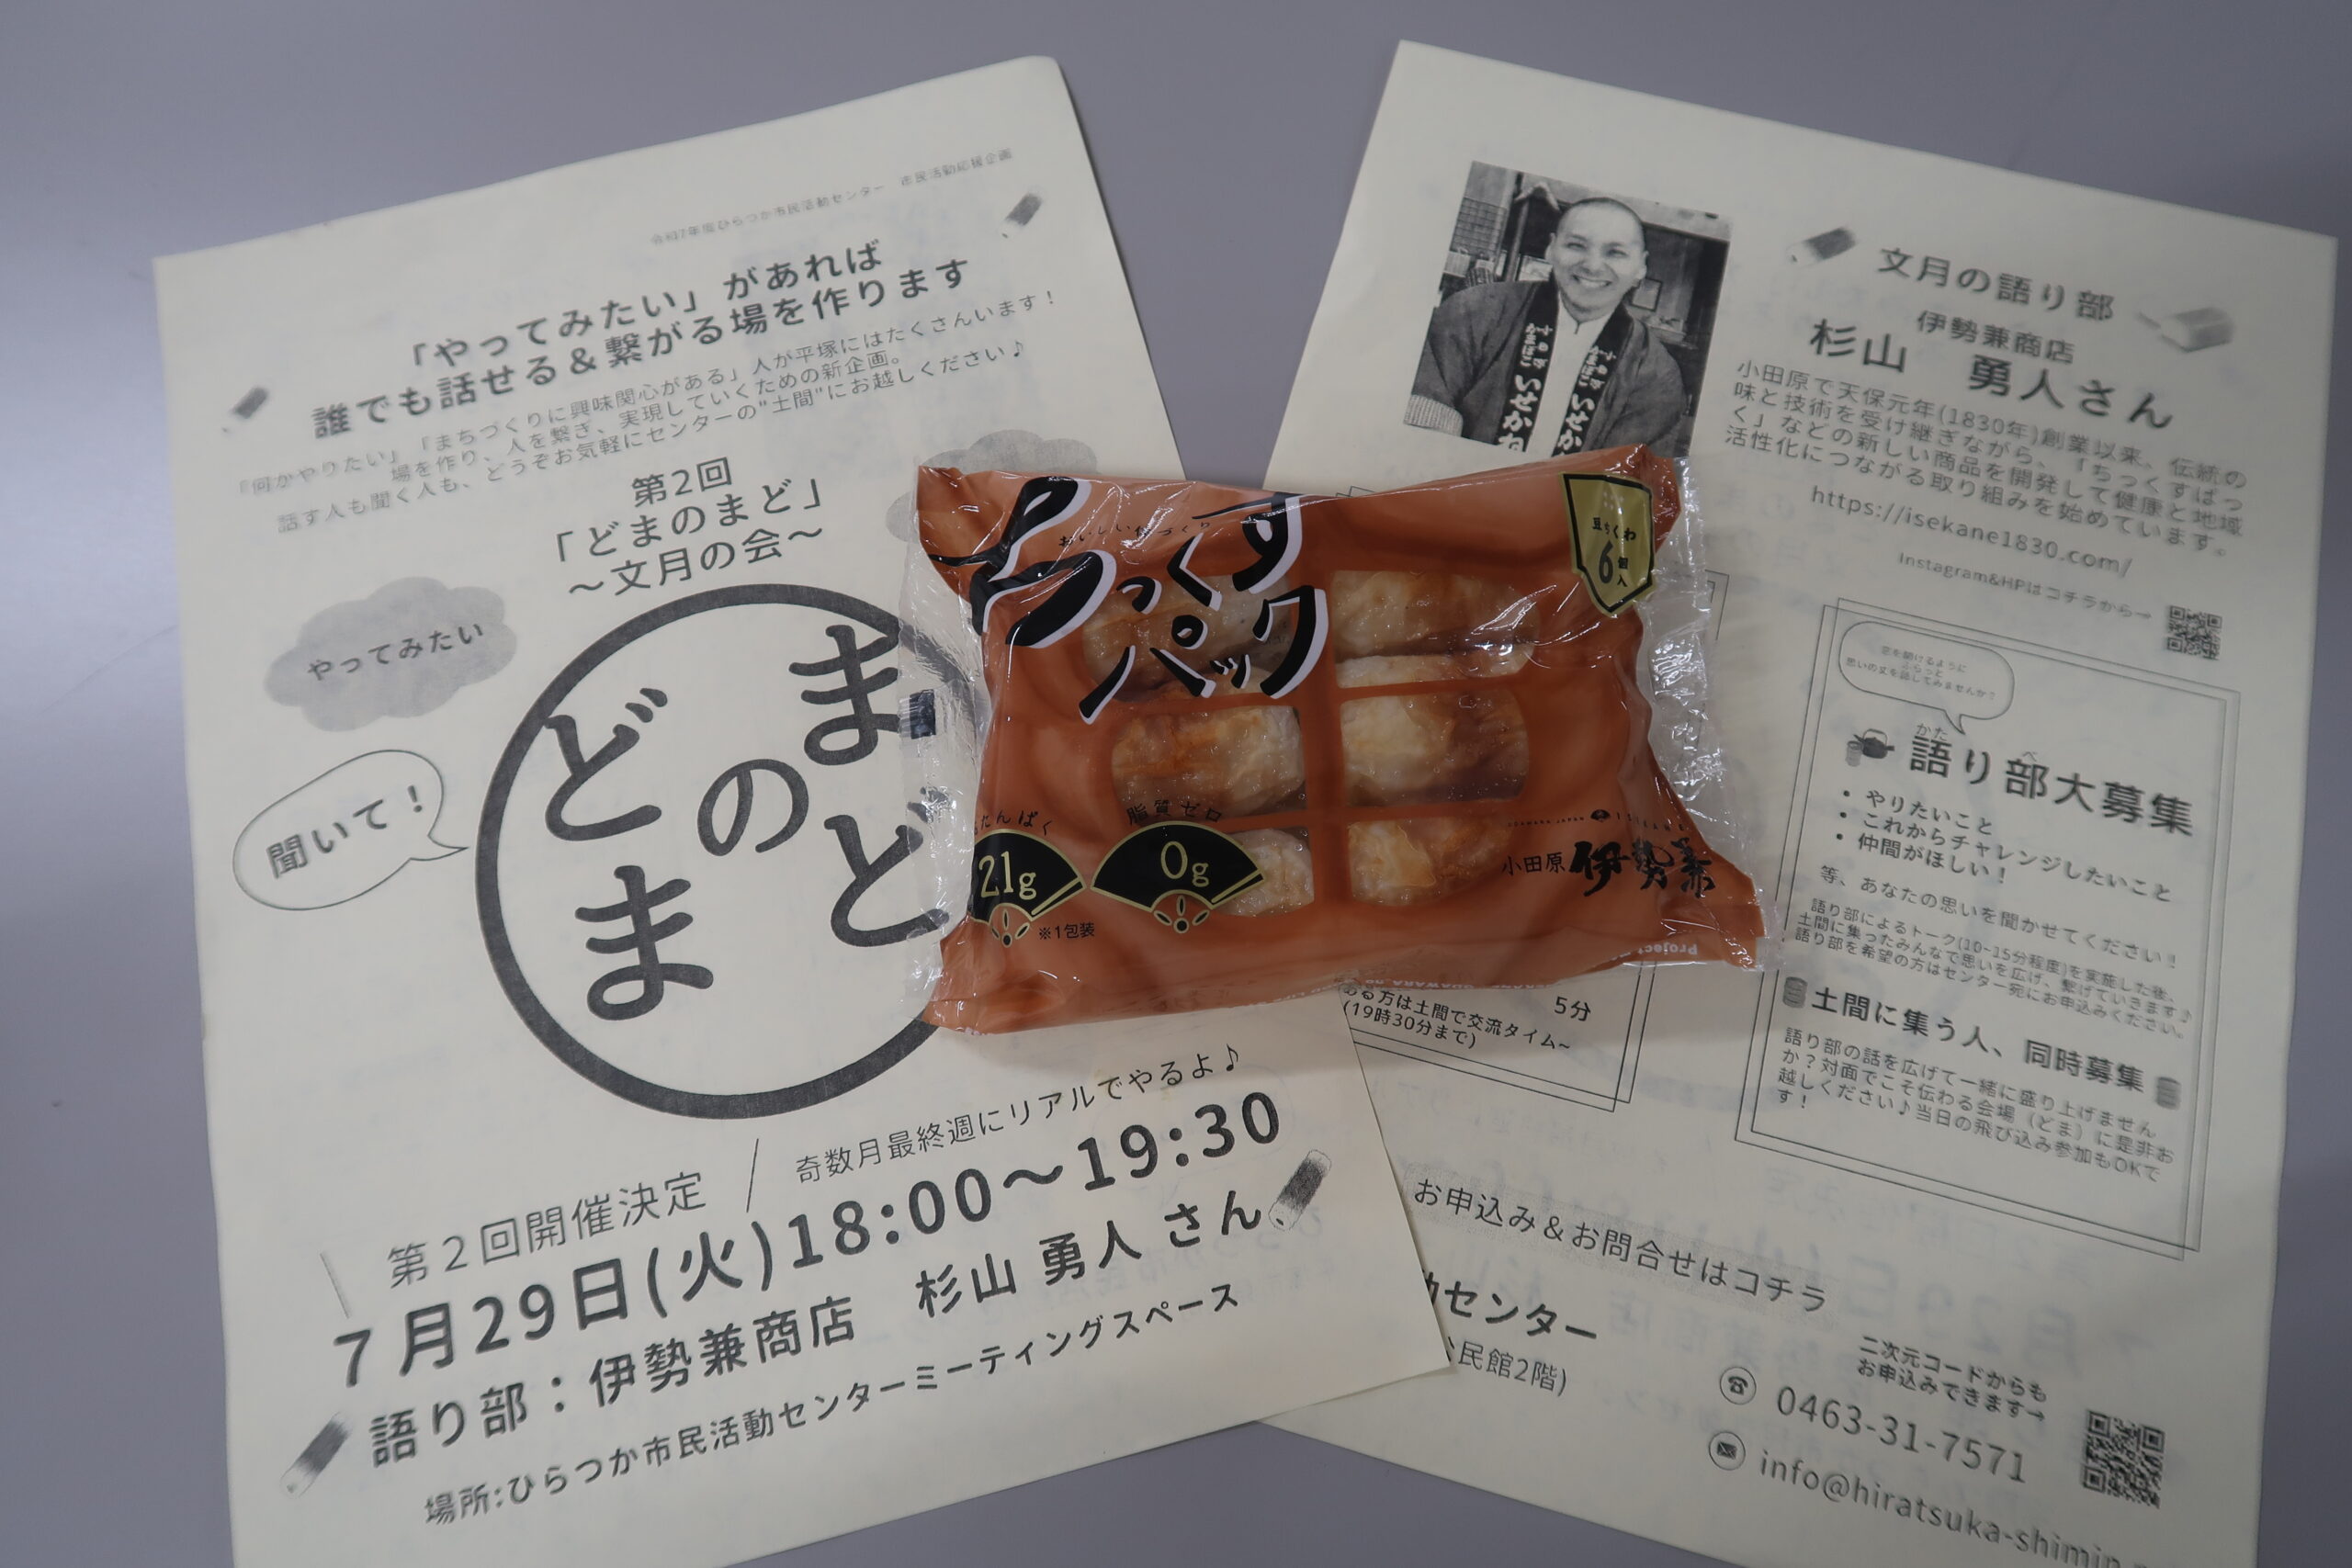 令和7年度ひらつか市民活動センター　市民活動応援企画
「やってみたい」があれば
誰でも話せる＆繋がる場を作ります
「何かやりたい」「まちづくりに興味関心がある」人が平塚にはたくさんいます！
場を作り、人を繋ぎ、実現していくための新企画。
話す人も聞く人も、どうぞお気軽にセンターの"土間"にお越しください♪
第2回
「どまのまど」
～文月の会～
やってみたい
聞いて！
どま
の
まど
第２回開催決定
奇数月最終週にリアルでやるよ♪
７月29日(火)18:00～19:30
語り部：伊勢兼商店　杉山 勇人 さん
場所:ひらつか市民活動センターミーティングスペース
おいしい
ちっくす
パック
豆ちくわ
6個入
たんぱく
21g
脂質ゼロ
0g
※1包装
小田原 伊勢兼
Project
文月の語り部
伊勢兼商店
杉山　勇人さん
小田原で天保元年(1830年)創業以来、伝統の
味と技術を受け継ぎながら、「ちっくすぱっ
く」などの新しい商品を開発して健康と地域
活性化につながる取り組みを始めています。
https://isekane1830.com/
Instagram&HPはコチラから→
小田原 かまぼこ いせかね
小田原 かまぼこ いせか
窓を開けるように
ふらっと
思いの丈を話してみませんか？
かた
べ
語り部大募集
・ やりたいこと
・ これからチャレンジしたいこと
・ 仲間がほしい！
等、あなたの思いを聞かせてください！！
語り部によるトーク(10~15分程度)を実施した後、
土間に集ったみんなで思いを広げ、繋げていきます♪
語り部を希望の方はセンター宛にお申込みください。
土間に集う人、同時募集
語り部の話を広げて一緒に盛り上げません
か？対面でこそ伝わる会場（どま）に是非お
越しください♪当日の飛び込み参加もOKで
す！
5分
ある方は土間で交流タイム~
(19時30分まで)
お申込み＆お問合せはコチラ
動センター
民館2階)
二次元コードからも
お申込みできます→
0463-31-7571
info@hiratsuka-shimin